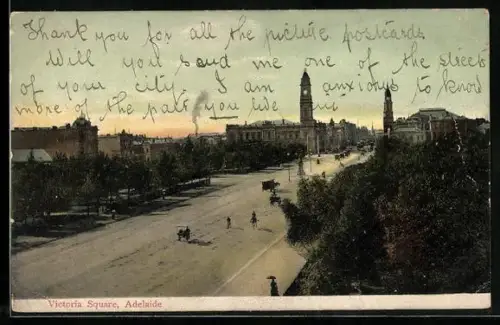 Thank you for all the picture postcards
Will you send me one of the streets
of your city. I am anxious to know
more of the part you live in
Victoria Square, Adelaide